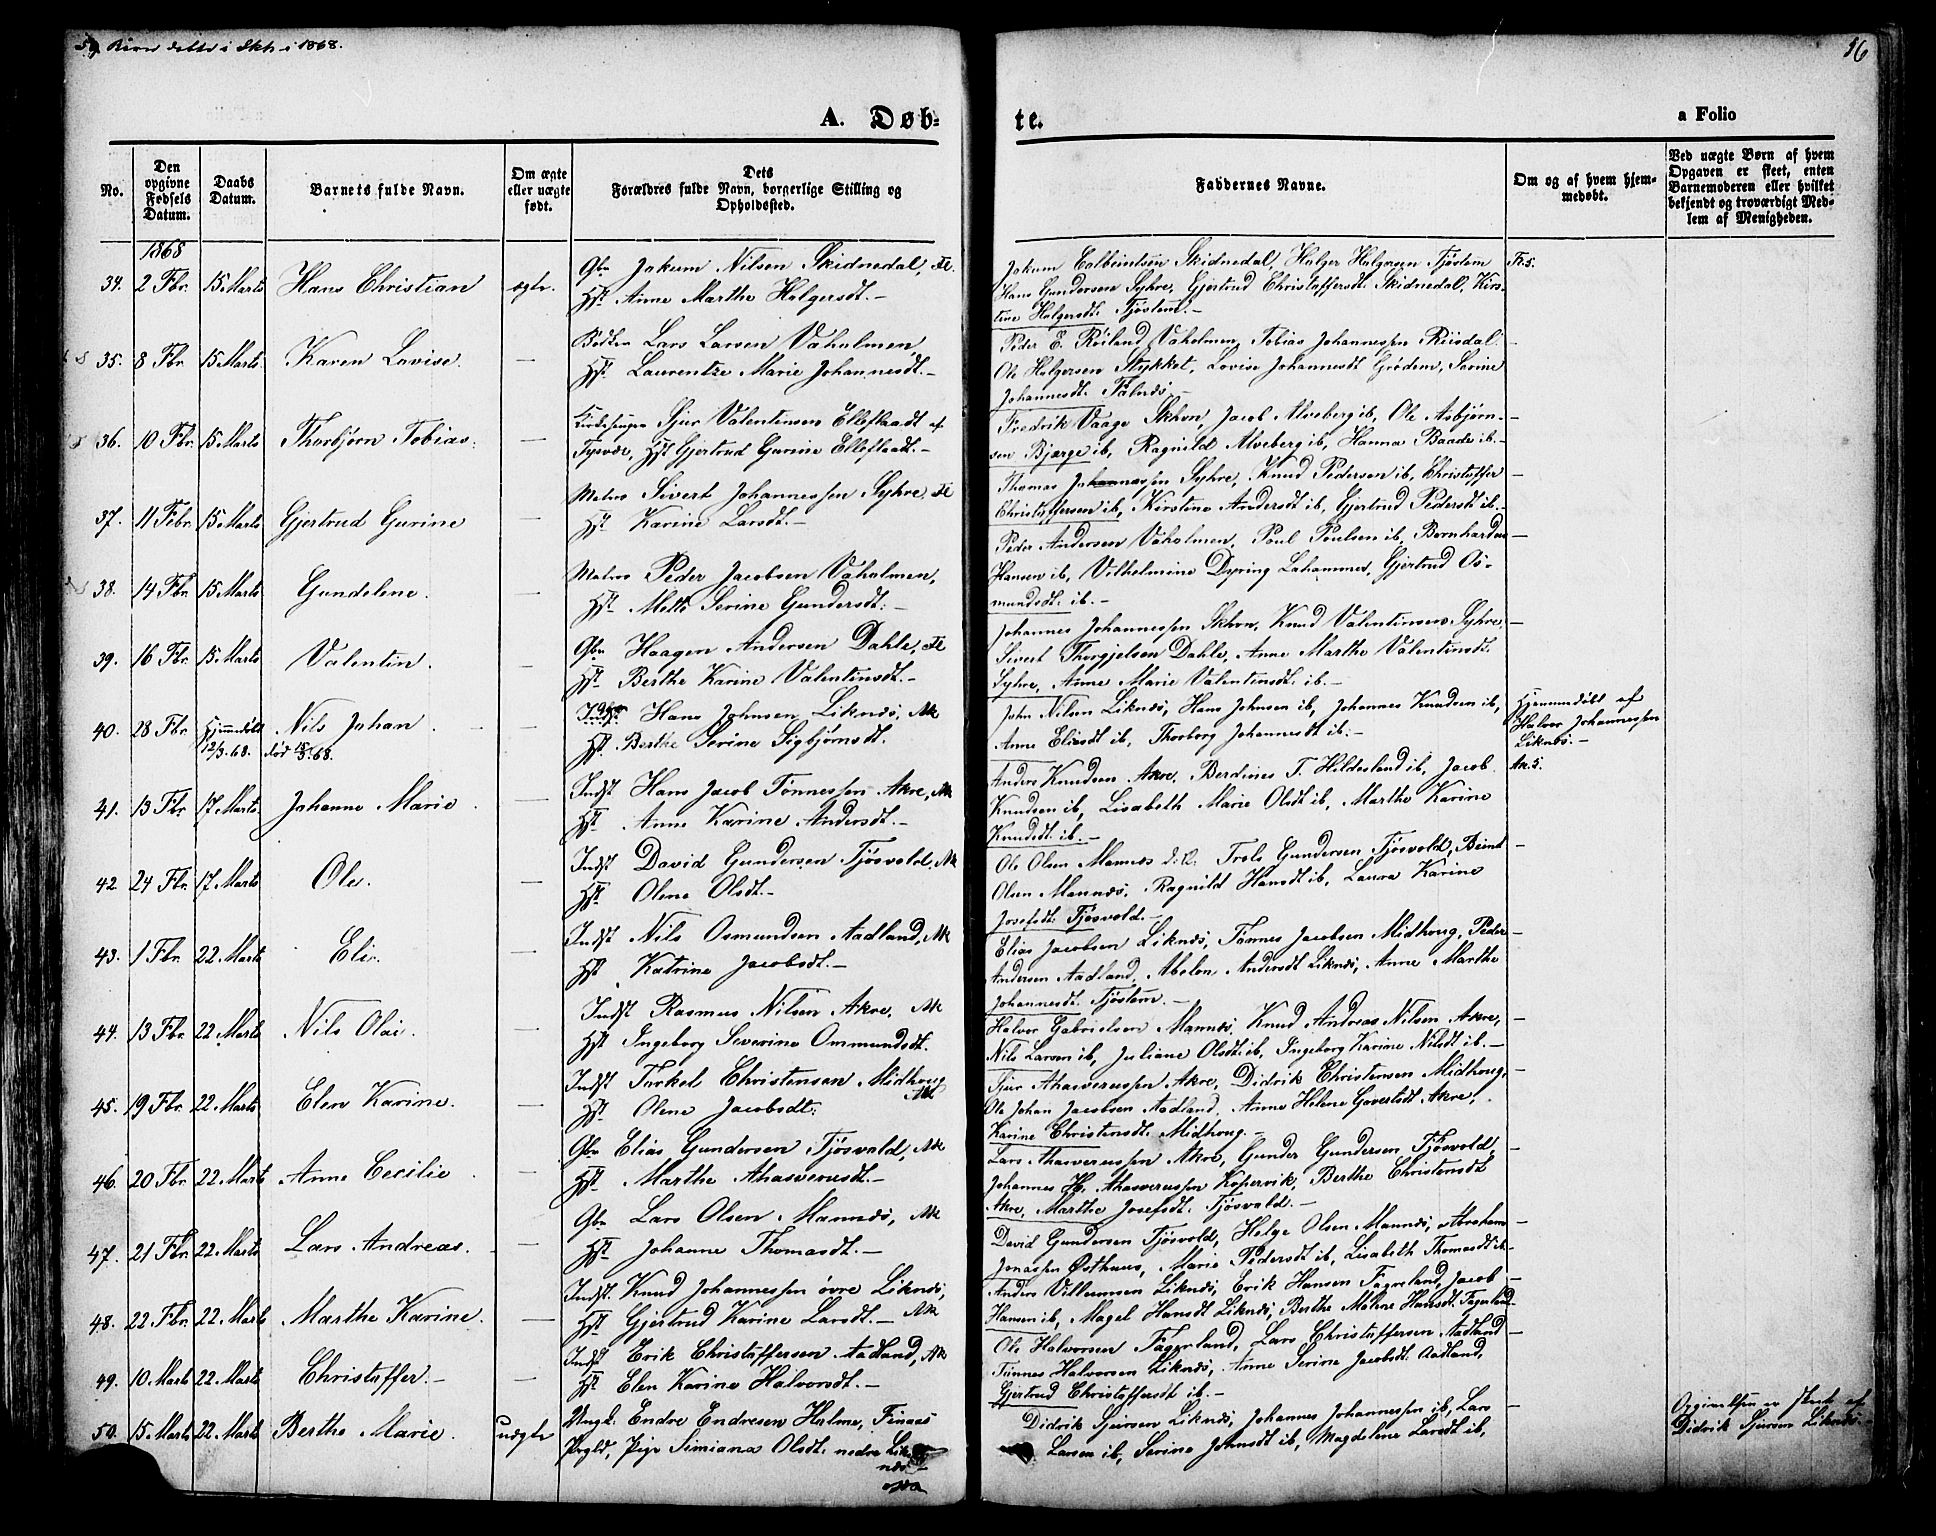 Børn døbte i Skh i 1868.
16
A. Døb-
te.
a Folio
No.
Den opgivne Fødsels Datum.
Daabs Datum.
Barnets fulde Navn.
Om ægte eller uægte født.
Dets Forældres fulde Navn, borgerlige Stilling og Opholdssted.
Faddernes Navne.
Om og af hvem hjemmedøbt.
Ved uægte Børn af hvem Opgaven er skeet, enten Barnemoderen eller hvilket bekjendt og troværdigt Medlem af Menigheden.
1868
34. 2 Fbr. 15 Marts Hans Christian ægte.
Gbr Jakum Nilsen Skidnedal, Fl.
Hst. Anne Marthe Holgersdt.-
Jokum Skidnedal, Holger Holgersen Tjøstem
Hans Gundersen Syhre, Gjertrud Christoffersdt. Skidnedal, Kirs-
tine Holgersdt. Tjøstem.-
35. 8 Fbr. 15 Marts Karen Lovise. —
Lars Larsen Vaholmen
Hst. Laurentze Marie Johannesdt.-
Peder E. Røiland Vaholmen, Tobias Johannessen Riisdal.
Ole Holgersen Stykket, Lovise Johannesdt Grødem, Serine
Johannesdt. Falnæs.
36. 10 Fbr. 15 Marts Thorbjørn Tobias. —
Kirkesanger Sjur Valentinsen Elleflaadt af
Tysvær, Hst Gjertrud Gurine Elleflaadt.-
Fredrik Vaage Skhvn, Jacob Alveberg ib, Ole Asbjørn-
sen Bjerge ib, Ragnild Alveberg ib, Hanna Baade ib.-
37. 11 Febr. 15 Marts Gjertrud Gurine —
Matros Sivert Johannessen Syhre, Fl
Hst. Karine Larsdt.-
Thomas Johannessen Syhre, Knud Pedersen ib, Christoffer
Christoffersen ib, Kirstine Andersdt ib, Gjertrud Pedersdt ib.-
38. 14 Fbr. 15 Marts Gundelene. —
Matros Peder Jacobsen Vaholmen,
Hst. Mette Serine Gundersdt.-
Peder Andersen Vaholmen, Poul Poulsen ib, Bernhardus
Hansen ib, Vilhelmine Dyring Lahammer, Gjertrud Os-
mundsdt. ib.-
39. 16 Fbr. 15 Marts Valentin. —
Gbr Haagen Andersen Dahle, Fl
Hst. Berthe Karine Valentinsdt.-
Johannes Johannessen Skhvn, Knud Valentinsen Syhre,
Sivert Thorgjelsen Dahle, Anne Marthe Valentinsdt.
Syhre, Anne Marie Valentinsdt. ib.-
40. 28 Fbr. Hjemmedøbt 12/3.68. Nils Johan død 68. —
Hans Johnsen Liknæs, Ak
Hst. Berthe Serine Sigbjørnsdt.
John Nilsen Liknæs, Hans Johnsen ib, Johannes Knudsen ib,
Anne Eliasdt ib, Thorborg Johannesdt ib.-
Hjemmedøbt af
Halvor Johannessen
Liknæs.-
41. 13 Fbr. 17 Marts Johanne Marie —
Indst Hans Jacob Tønnessen Akre, Ak
Hst. Anne Karine Andersdt.-
Anders Knudsen Akre, Berdines T. Hildesland ib, Jacob
Knudsen ib, Lisabeth Marie Olsdt ib, Marthe Karine
Knudsdt. ib.-
42 24 Fbr. 17 Marts Ole. —
Indst David Gundersen Tjøsvold, Ak
Hst Olene Olsdt.-
Ole Olsen Mannes Trols Gundersen Tjøsvold, Beint
Olsen Mannæs, Ragnild Hansdt ib, Laura Karine
Josefsdt. Tjøsvold.-
43. 1 Fbr. 22 Marts Eli. —
Indst Nils Osmundsen Aadland, Ak
Hst Katrine Jacobsdt.-
Elias Jacobsen Liknæs, Tønnes Jacobsen Midhoug, Peder
Andersen Aadland, Abelone Andersdt Liknæs, Anne Marthe
Johannesdt. Tjøstem.-
44. 13 Fbr. 22 Marts Nils Olai. —
Indst Rasmus Nilsen Akre, Ak
Hst Ingeborg Severine Ommundsdt.
Halvor Gabrielsen Mannæs, Knud Andreas Nilsen Akre,
Nils Larsen ib, Juliane Olsdt. ib, Ingeborg Karine Nilsdt ib.-
45. 19 Fbr. 22 Marts Elen Karine. —
Indst Torkel Christensen Midhoug
Ak
Hst Olene Jacobsdt.
Sjur Ahasverussen Akre, Didrik Christensen Midhoug,
Ole Johan Jacobsen Aadland, Anne Helene Govertsdt Akre,
Karine Christensdt. Midhoug.-
46. 20 Fbr. 22 Marts Anne Cecilie —
Gbr Elias Gundersen Tjøsvold, Ak
Hst. Marthe Ahasverusdt.-
Lars Ahasverussen Akre, Gunder Gundersen Tjøsvold,
Johannes H. Ahasverussen Kopervik, Berthe Christensdt
Akre, Marthe Josefsdt. Tjøsvold.-
47. 21 Fbr. 22 Marts Lars Andreas. —
Gbr Lars Olsen Mannæs, Ak
Hst. Johanne Thomasdt.-
David Gundersen Tjøsvold, Helge Olsen Mannæs, Abraham
Jonassen Østhuus, Marie Pedersdt ib, Lisabeth Thomasdt ib.
48. 22 Fbr. 22 Marts Marthe Karine. —
Indst. Knud Johannessen øvre Liknæs,
Hst. Gjertrud Karine Larsdt.- Ak
Anders Villumsen Liknæs, Erik Hansen Fagerland, Jacob
Hansen ib, Magel Hansdt Liknæs, Berthe Malene Hansdt. Fagerland
49. 10 Marts 22 Marts Christoffer.- —
Indst Erik Christoffersen Aadland, Ak
Hst. Elen Karine Halvorsdt.-
Ole Halvorsen Fagerland, Lars Christoffersen Aadland
Tønnes Halvorsen Liknæs, Anne Serine Jacobsdt Aadland,
Gjertrud Christoffersdt ib.-
50. 15 Marts 22 Marts Berthe Marie. uægte
Ungk. Endre Endresen Halme, Finaas
Prgld, Pige Simiana Olsdt. nedre Lik-
næs
Didrik Sjursen Liknæs, Johannes Johannessen ib, Lars
Larsen ib, Serine Johnsdt ib, Magdelene Larsdt ib,
Opgivelsen er skeet af
Didrik Sjursen Liknæs.-